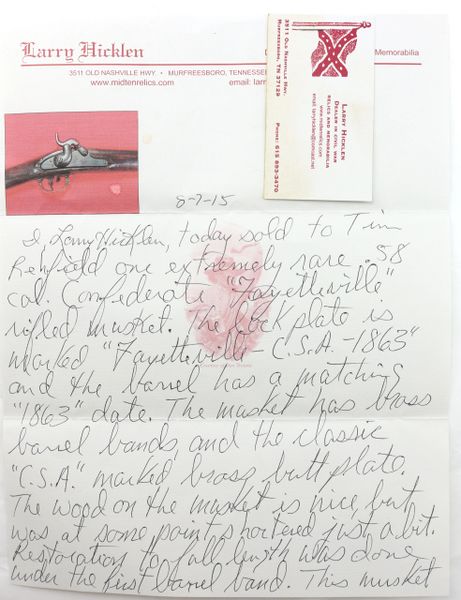 Larry Hicklen
Memorabilia
3511 OLD NASHVILLE HWY. • MURFREESBORO, TENNESSEE
www.midtenrelics.com email:
3511 OLD NASHVILLE HWY.
MURFREESBORO, TN 37129
PHONE: 615 893-3470
LARRY HICKLEN
DEALER IN CIVIL WAR
RELICS AND MEMORABILIA
www.midtenrelics.com
email: larryhicklen@comcast.net
8-7-15
I, Larry Hicklen, today sold to Tim
Renfield one extremely rare .58
cal. Confederate "Fayetteville"
rifled musket. The lock plate is
marked "Fayetteville - C.S.A. - 1863"
and the barrel has a matching
"1863" date. The musket has brass
barrel bands, and the classic
"C.S.A." marked brass butt plate.
The wood on the musket is nice, but
was, at some point, shortened just a bit.
Restoration to full length was done
under the first barrel band. This musket